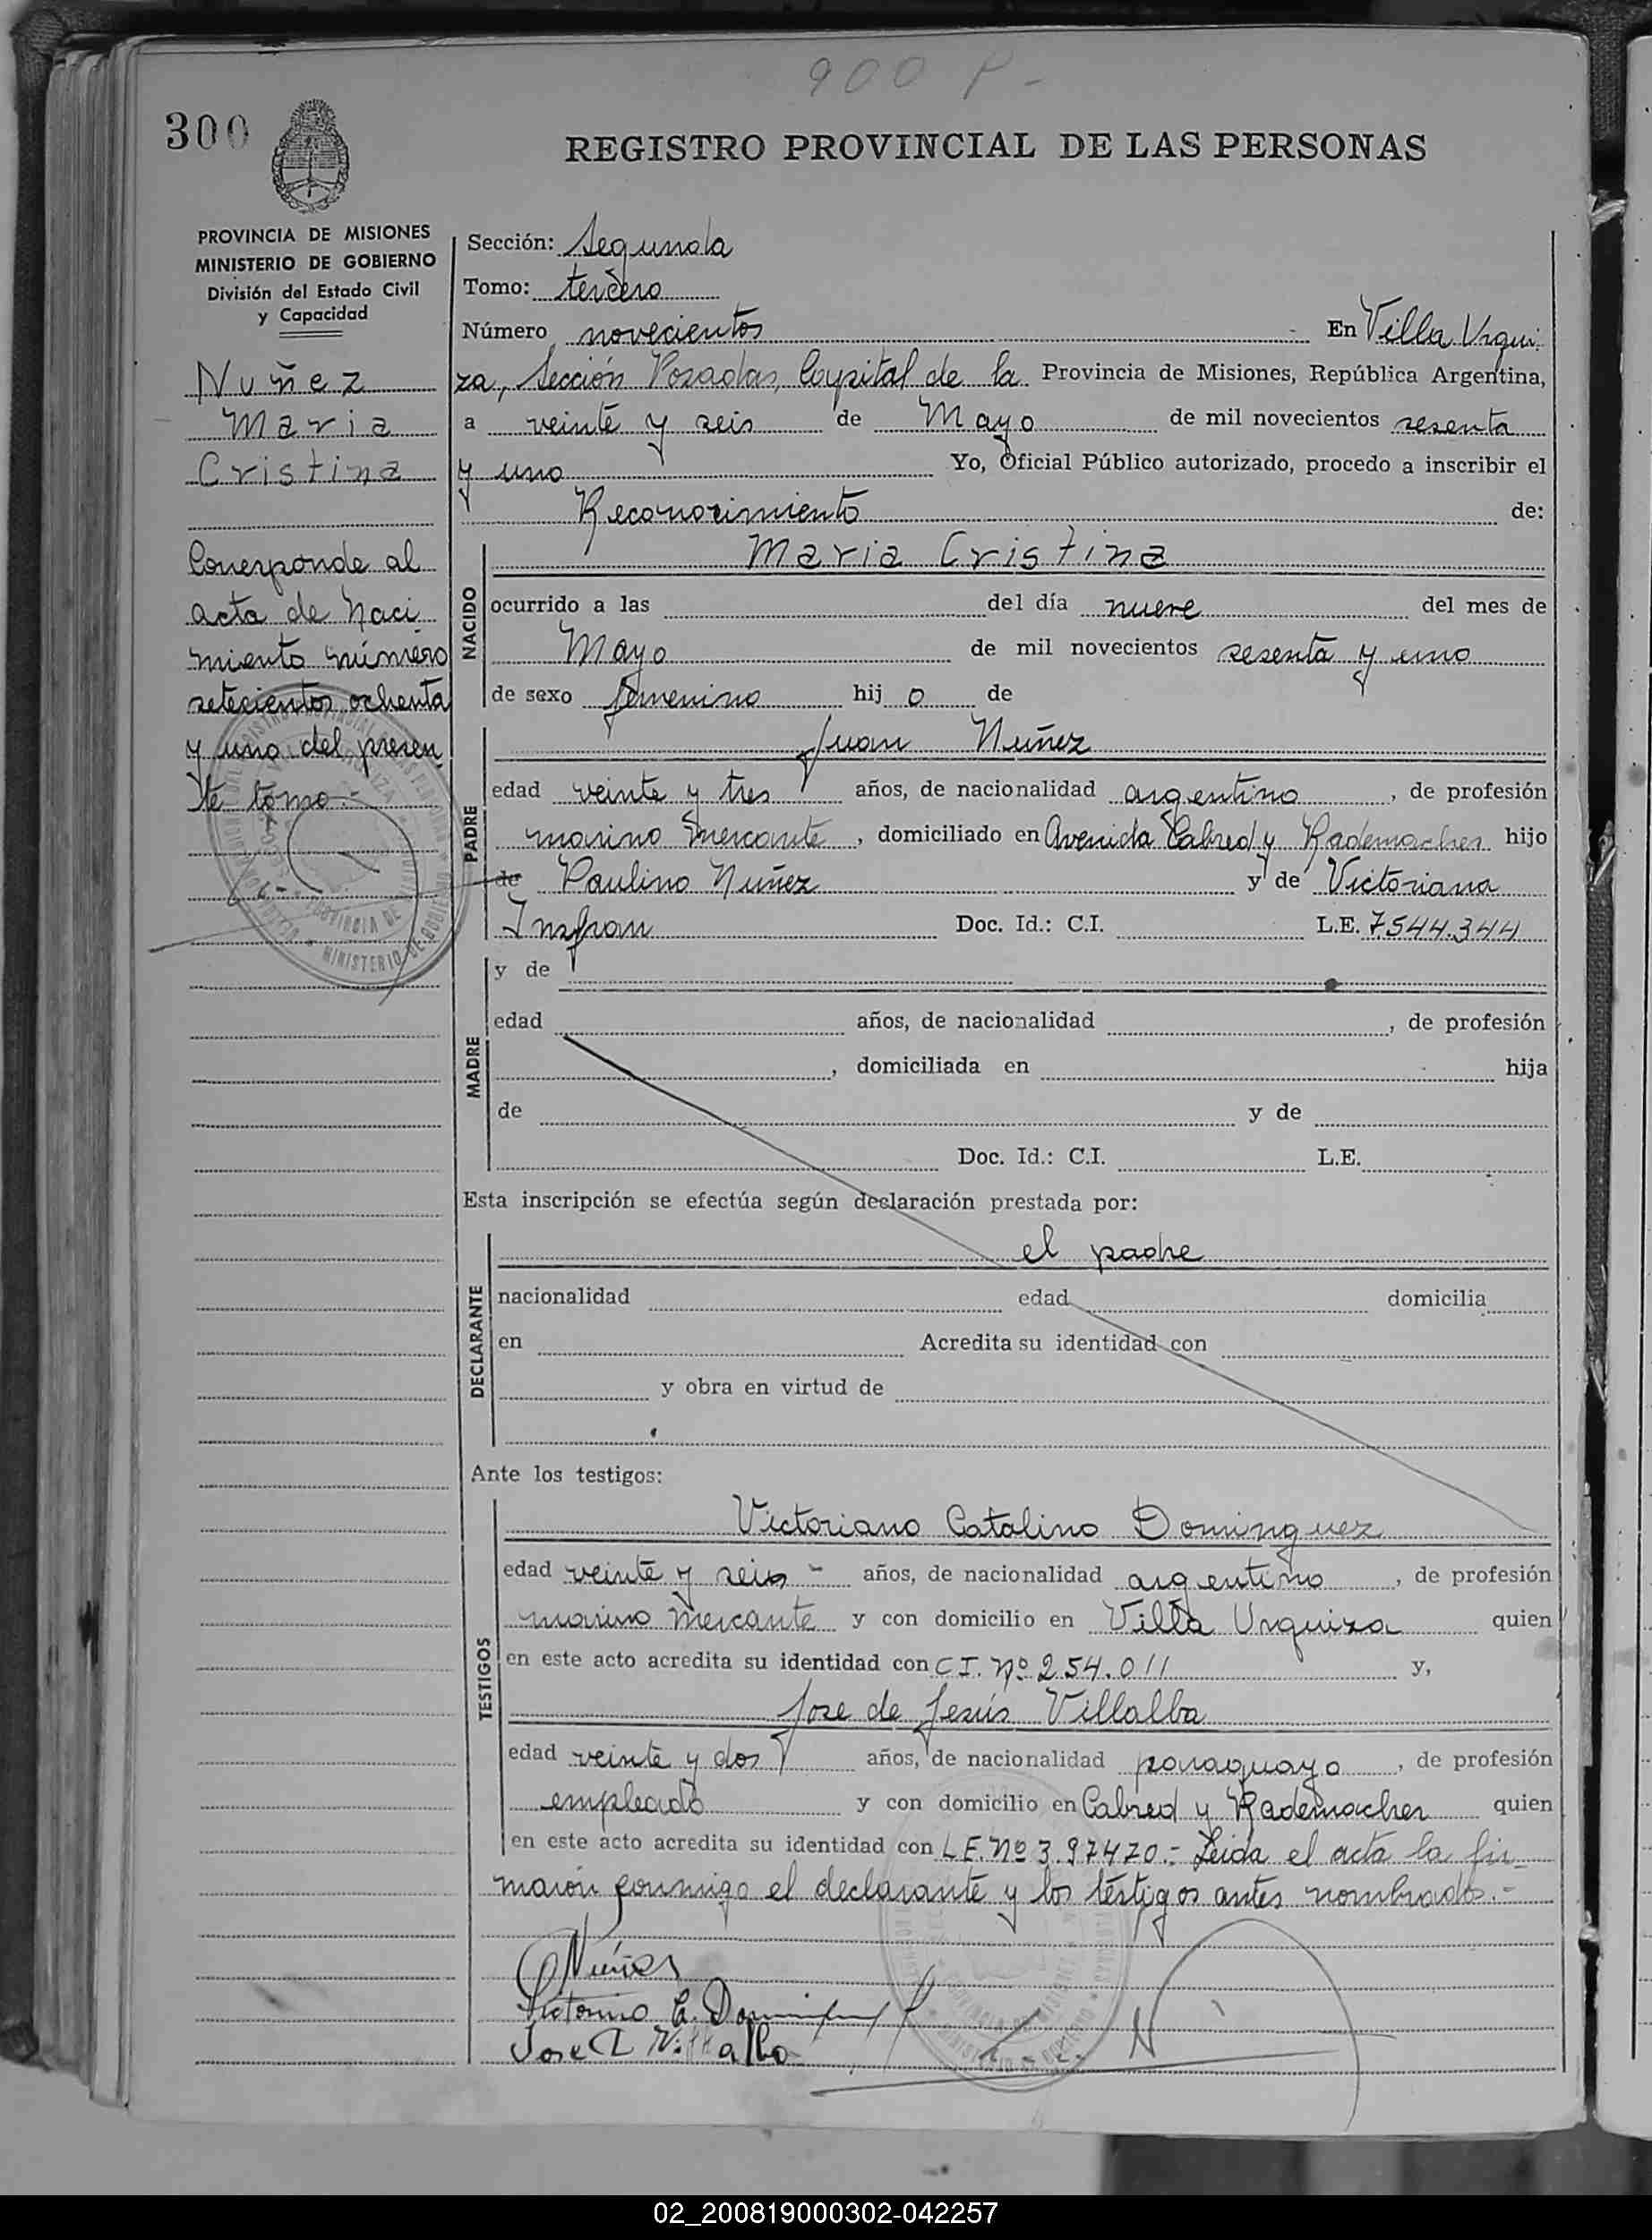 900 P-
300
REGISTRO PROVINCIAL DE LAS PERSONAS
PROVINCIA DE MISIONES
MINISTERIO DE GOBIERNO
División del Estado Civil
y Capacidad
Nuñez
Maria
Cristina
Corresponde al
acta de Naci
miento número
setecientos ochenta
y uno del presen
te tomo.-
Sección: Segunda
Tomo: tercero
Número novecientos En Villa Urqui
za, Sección Posadas, Capital de la Provincia de Misiones, República Argentina,
a veinte y seis de Mayo de mil novecientos sesenta
y uno Yo, Oficial Público autorizado, procedo a inscribir el
Reconocimiento de:
NACIDO
Maria Cristina
ocurrido a las del día nueve del mes de
Mayo de mil novecientos sesenta y uno
de sexo femenino hij o de
PADRE
Juan Nuñez
edad veinte y tres años, de nacionalidad argentino, de profesión
marino mercante, domiciliado en Avenida Cabred y Rademacher hijo
de Paulino Nuñez y de Victoriana
Insfran Doc. Id.: C.I. L.E. 7544.344
MADRE
y de
edad años, de nacionalidad , de profesión
, domiciliada en hija
de y de
Doc. Id.: C.I. L.E.
Esta inscripción se efectúa según declaración prestada por:
DECLARANTE
el padre
nacionalidad edad domicilia
en Acredita su identidad con
y obra en virtud de
Ante los testigos:
TESTIGOS
Victoriano Catalino Dominguez
edad veinte y seis - años, de nacionalidad argentino, de profesión
marino mercante y con domicilio en Villa Urquiza quien
en este acto acredita su identidad con C.I. Nº 254.011 y,
Jose de Jesús Villalba
edad veinte y dos años, de nacionalidad paraguayo, de profesión
empleado y con domicilio en Cabred y Rademacher quien
en este acto acredita su identidad con L.E. Nº 3.97470.- Leida el acta la fir
maron conmigo el declarante y los testigos antes nombrados.-
Nuñez
Victorino C. Dominguez
Jose D Villalba
02_200819000302-042257